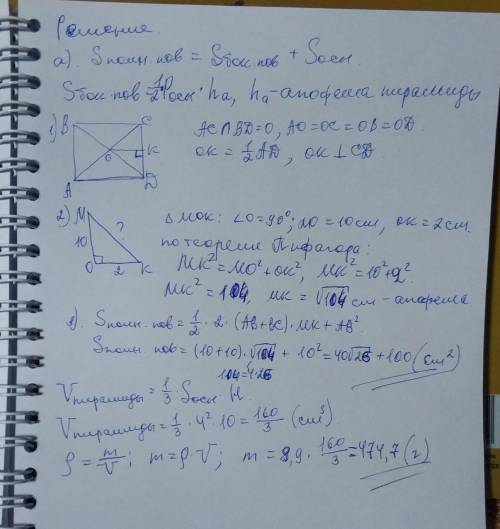 Решение.
а). Sполн.пов = Sбок.пов + Sосн.
Sбок.пов = 1/2 Pосн · ha, ha - апофема пирамиды
1) B C AC∩BD=O, AO=OC=OB=OD.
O K OK = 1/2 AD, OK ⊥ CD.
A D
2) M ? △MOK: ∠O=90°; MO=10см, OK=2см.
10 по теореме Пифагора:
O 2 K MK²=MO²+OK², MK²=10²+2²
MK²=104, MK=√104 см - апофема
Sполн.пов = 1/2 · 2 · (AB+BC) · MK + AB²
Sполн.пов = (10+10) · √104 + 10² = 40√26 + 100 (см²)
104=4·26
Vпирамиды = 1/3 · Sосн H.
Vпирамиды = 1/3 · 4² · 10 = 160/3 (см³)
ρ = m/V; m=ρ·V; m = 8,9 · 160/3 = 474,7 (г)